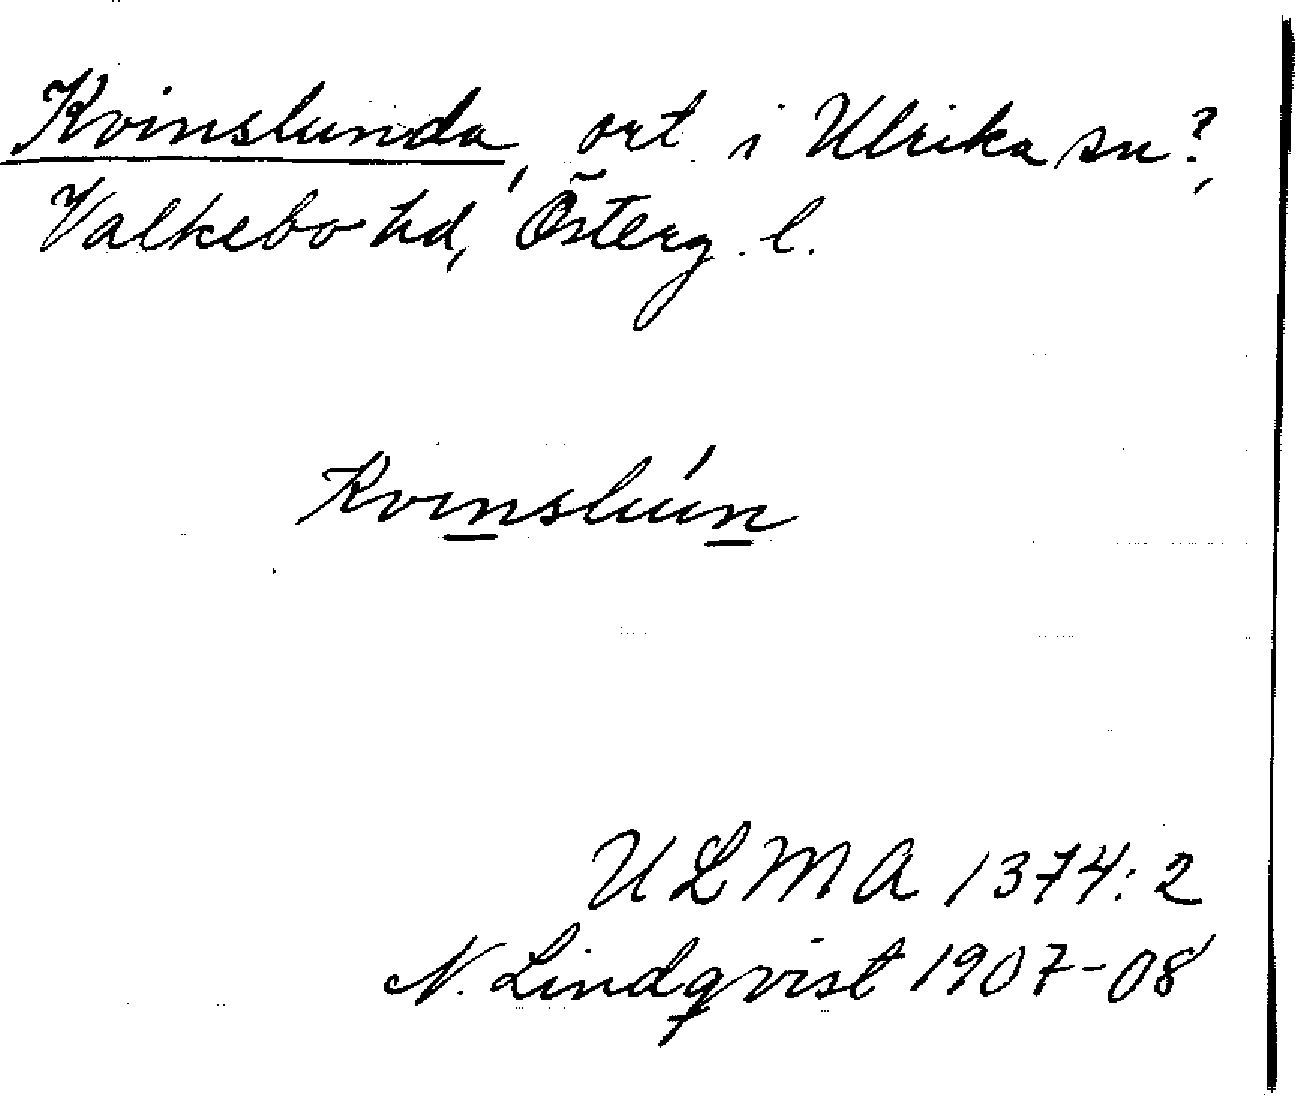 Kvinslunda, ort i Ulrika sn?,
Valkebo hd, Österg. l.
Kvinslún
ULMA 1374:2
N. Lindqvist 1907-08